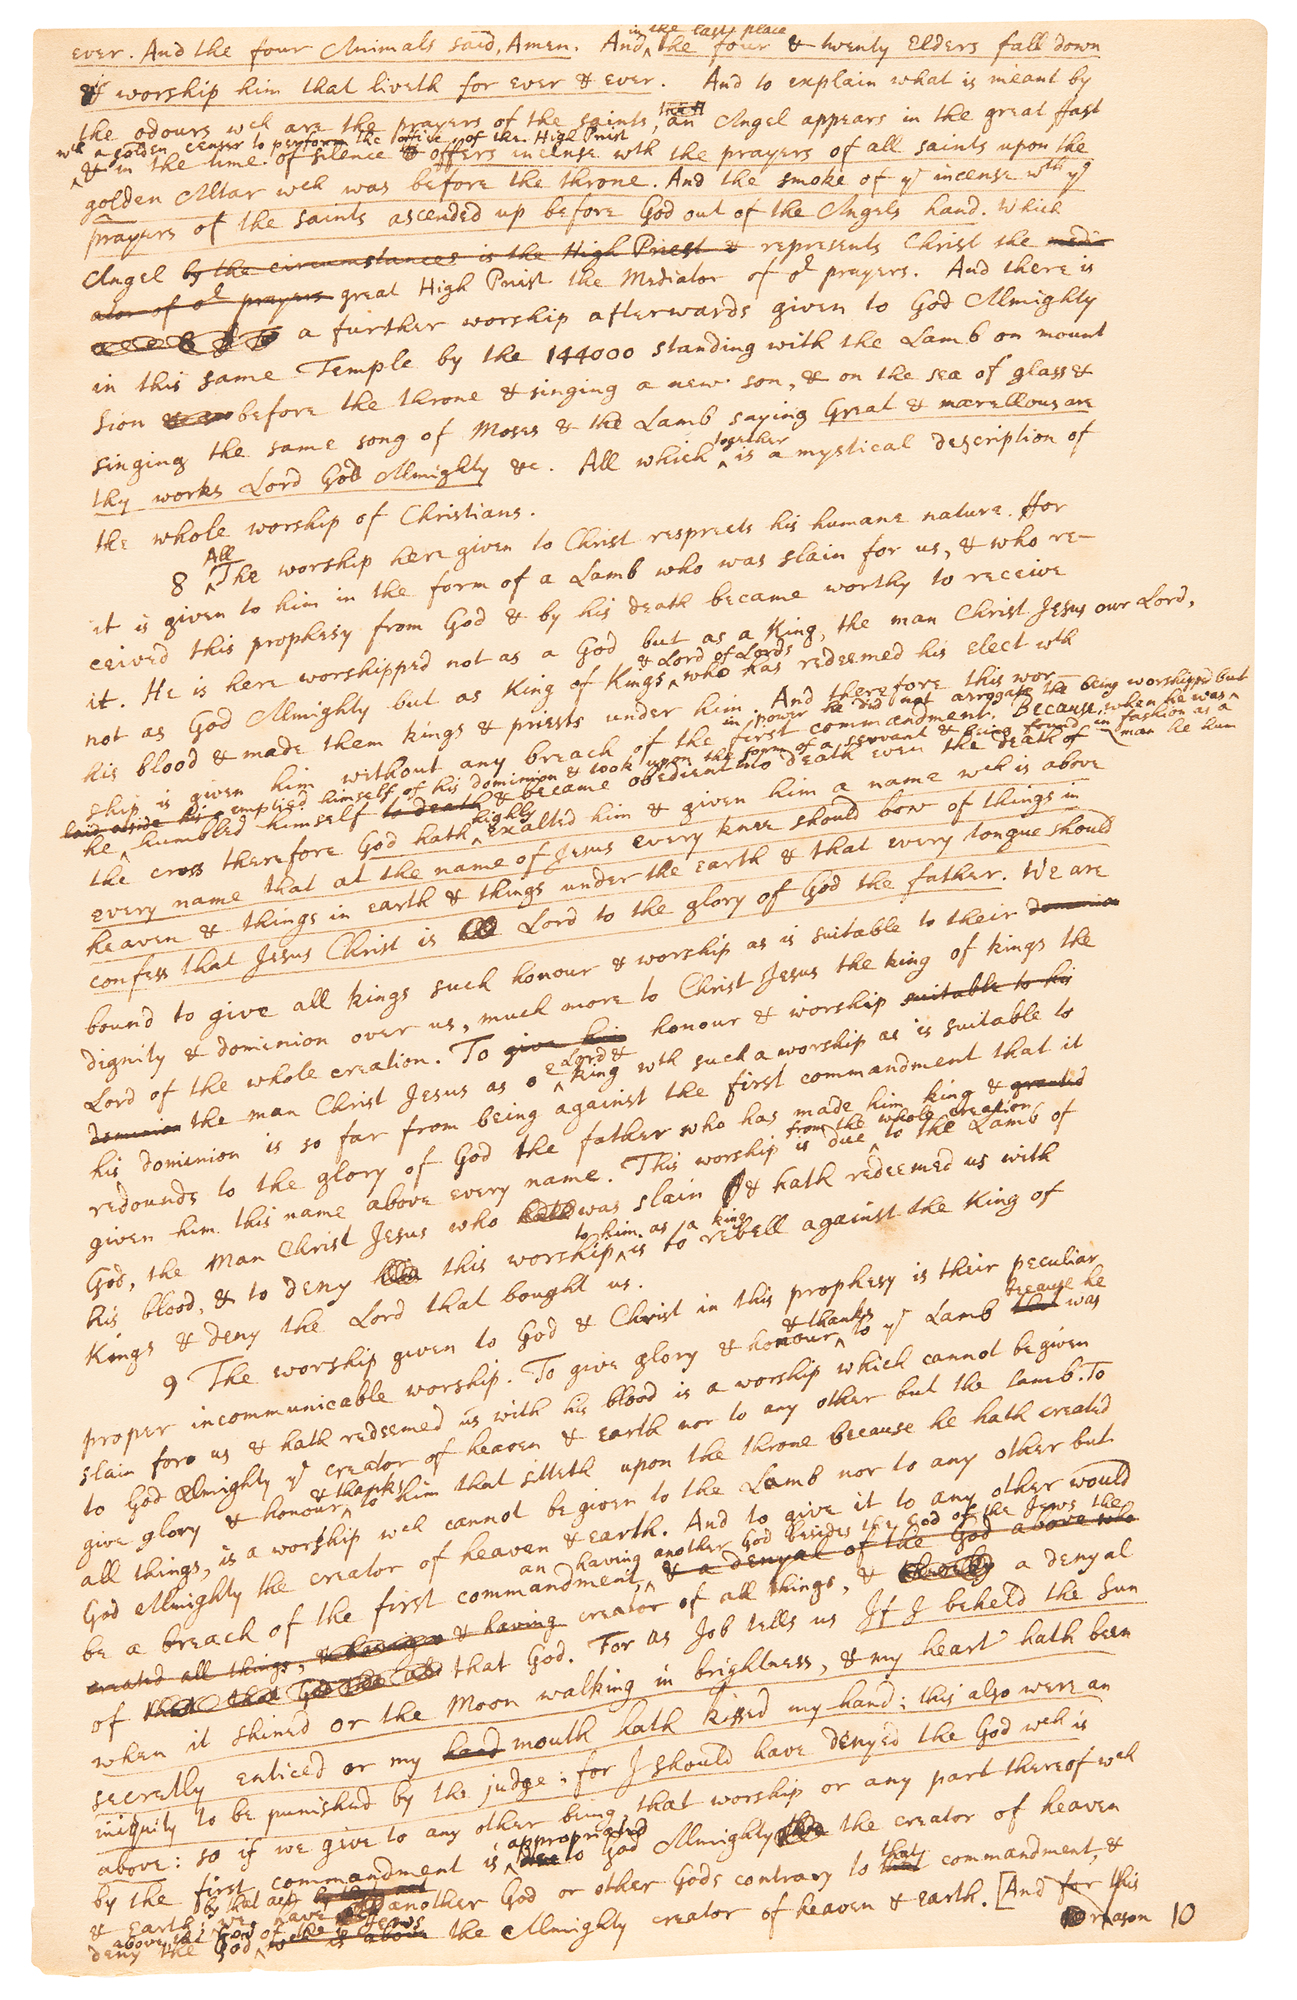 in the last place
ever. And the four Animals said, Amen. And ^ the four & twenty Elders fall down
& worship him that liveth for ever & ever. And to explain what is meant by
the odours wch are the prayers of the saints, an Angel appears in the great fast
wth a golden censer to perform the office of the High Priest
^ & in the time of silence & offers incense wth the prayers of all saints upon the
golden Altar wch was before the throne. And the smoke of ye incense wth ye
prayers of the saints ascended up before God out of the Angels hand. Which
Angel by the circumstances is the High Priest & represents Christ the medi
ator of or prayers great High Priest the Mediator of or prayers. And there is
a further worship afterwards given to God Almighty
in this same Temple by the 144000 standing with the Lamb on mount
Sion before the throne & singing a new son, & on the sea of glass &
singing the same song of Moses & the Lamb saying Great & marvellous are
together
thy works Lord God Almighty &c. All which ^ is a mystical description of
the whole worship of Christians.
All
8 ^ The worship here given to Christ respects his humane nature. ffor
it is given to him in the form of a Lamb who was slain for us, & who re-
ceived this prophesy from God & by his death became worthy to receive
it. He is here worshipped not as a God but as a King, the man Christ Jesus our Lord,
& Lord of Lords
not as God Almighty but as King of Kings ^ who has redeemed his elect wth
his blood & made them kings & priests under him. And therefore this wor-
ship is given him without any breach of the first commandment. Because, when he was ^
in power he did not arrogate the being worshipped but
laid aside his emptied himself of his dominion & took upon the form of a servant & being found in fashion as a
he ^ humbled himself to death & became obedient to death even the death of man he hum
highly
the cross therefore God hath ^ exalted him & given him a name wch is above
every name that at the name of Jesus every knee should bow of things in
heaven & things in earth & things under the earth & that every tongue should
confess that Jesus Christ is Lord to the glory of God the father. We are
bound to give all kings such honour & worship as is suitable to their dominion
dignity & dominion over us, much more to Christ Jesus the king of kings the
Lord of the whole creation. To give him honour & worship suitable to his
Lord &
dominion the man Christ Jesus as oe ^ king wth such a worship as is suitable to
his dominion is so far from being against the first commandment that it
redounds to the glory of God the father who has made him king & granted
from the whole creation
given him this name above every name. This worship is due ^ to the Lamb of
God, the Man Christ Jesus who hath was slain & hath redeemed us with
to him as a king
his blood, & to deny this worship ^ is to rebell against the King of
Kings & deny the Lord that bought us.
9 The worship given to God & Christ in this prophesy is their peculiar
& thanks because he
proper incommunicable worship. To give glory & honour ^ to ye Lamb that was
slain for us & hath redeemed us with his blood is a worship which cannot be given
to God Almighty ye creator of heaven & earth nor to any other but the lamb. To
& thanks
give glory & honour ^ to him that sitteth upon the throne because he hath created
all things, is a worship wch cannot be given to the Lamb nor to any other but
God Almighty the creator of heaven & earth. And to give it to any other would
an having another God besides the God of the Jews the
be a breach of the first commandment, ^ & a denyal of the God above who
created all things, & having creator of all things, & a denyal
of that God. For as Job tells us If I beheld the Sun
when it shined or the Moon walking in brightness, & my heart hath been
secretly enticed or my hand mouth hath kissed my hand: this also were an
iniquity to be punished by the judge: for I should have denyed the God wch is
above: so if we give to any other being that worship or any part thereof wch
appropriated
by the first commandment is ^ due to God Almighty the creator of heaven
by that act that
& earth; ^ we have another God or other Gods contrary to commandment, &
above, the God of the Jews
deny the God ^ wch is above the Almighty creator of heaven & earth. [And for this
reason 10